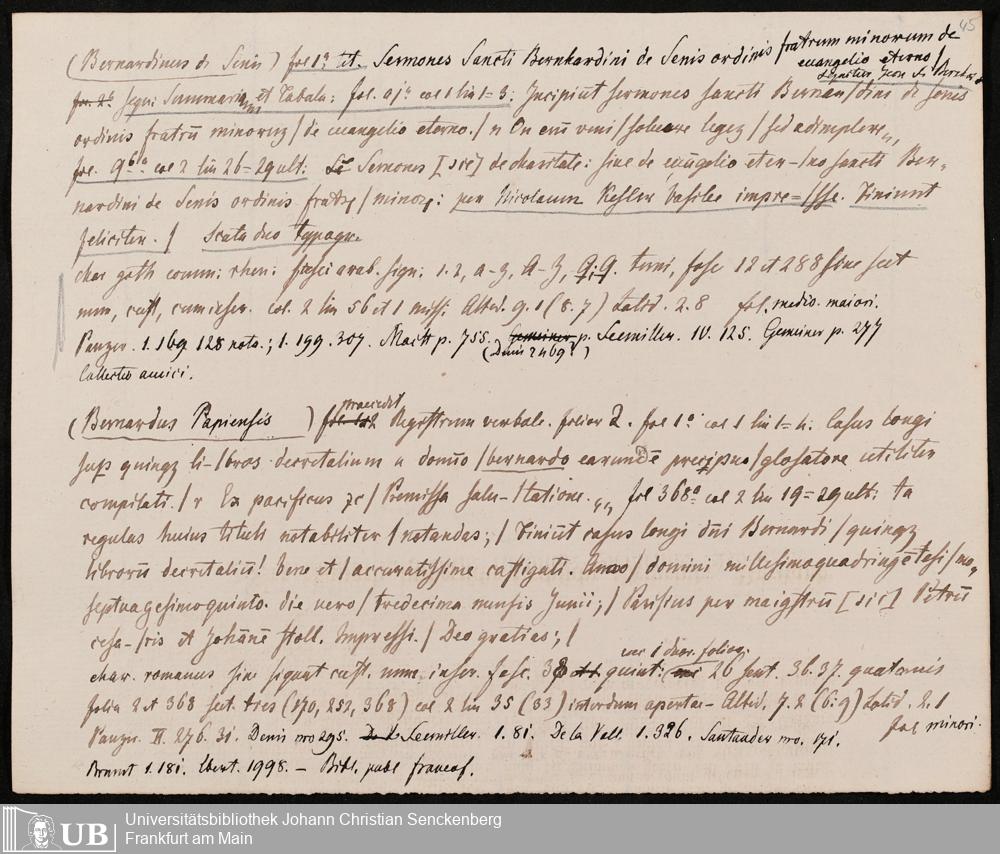 45
(Bernardinus de Senis) fol 1a tit. Sermones Sancti Bernhardini de Senis ordinis fratrum minorum de
euangelio eterno /
fol. 2a sequ: Summaria et Tabula: fol. a ja col 1 lin 1-3: Incipiunt sermones sancti Bernar/dini de senis
ordinis fratrū minoruz / de euangelio eterno. / n On eni veni / soluere legez / sed adimplere„
col 2 lin 26-29 ult: Sermones [sic] de charitate: siue de euāgelio eter-/no sancti Ber-
nardini de Senis ordinis / minorꝝ: per Nicolaum Kesler basilee impre=/sse. Finiunt
feliciter. / Scuta duo typogr.
char goth comm: rhen: arab. sign: 1. 2, a-z, A-Z, fosc 12 et 288 sine sect
num, cust, col. 2 lin 56 et 1 miss: Altid. 9. 1 (8. 7) Latid. 2. 8 fol. medio. maiori.
Panzer. 1. 169 128 nota.; 1. 199. 307. Maitt p. 755. Gemeiner p. Seemiller. IV. 125. Gemeiner p. 277
(Denis 2469?)
Collectio amici.
praecedit
(Bernardus Papiensis) Registrum verbale. folior 2. fol 1a col 1 lin 1-4: Casus longi
sup quinqz li-/bros decretalium a domīo / bernardo earundē precipuo / glosatore utiliter
compilati. / r Ex pacificus zc / Premissa salu-/tatione. „ fol 368a col 2 lin 19=29 ult: ta
regulas huius tituli notabiliter / notandas; / Finiūt casus longi dñi Bernardi / quinqz
librorū decretaliū! bene et / accuratissime castigati. Anno / domini millesimoquadringētesi / mo„
septuagesimoquinto. die vero / tredecima mensis Junii; / Parisius per magistrū [sic] Petrū
cesa-/ris et Johānē stoll. Impressi. / Deo gratias; /
folior:
char. romanus sine signat cust. num. inser. fosc. 38 quint: 26 sext. 36. 37. quaternis
folia 2 et 368 sect. tres (170, 252, 368) col 2 lin 35 (33) interdum apertae - Altid. 7. 2 (6: 9) Latid. 2. 1
fol minori.
Panzer. II. 276. 31. Denis nro 295. Seemiller. 1. 81. De la Vall. 1. 326. Santander nro. 171.
Brunet 1. 181. Ebert. 1998. - Bibl. publ francof.
UB
Universitätsbibliothek Johann Christian Senckenberg
Frankfurt am Main